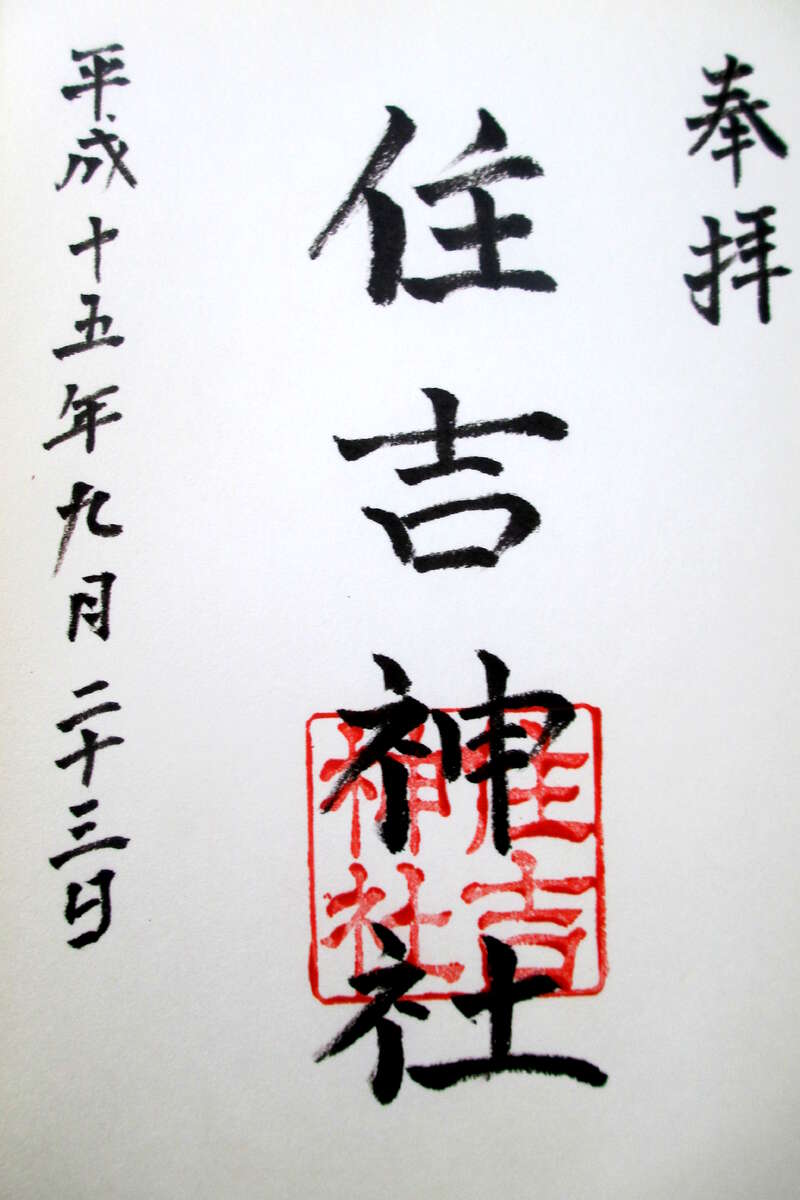 奉拝
住吉神社
住吉
神社
平成十五年九月二十三日